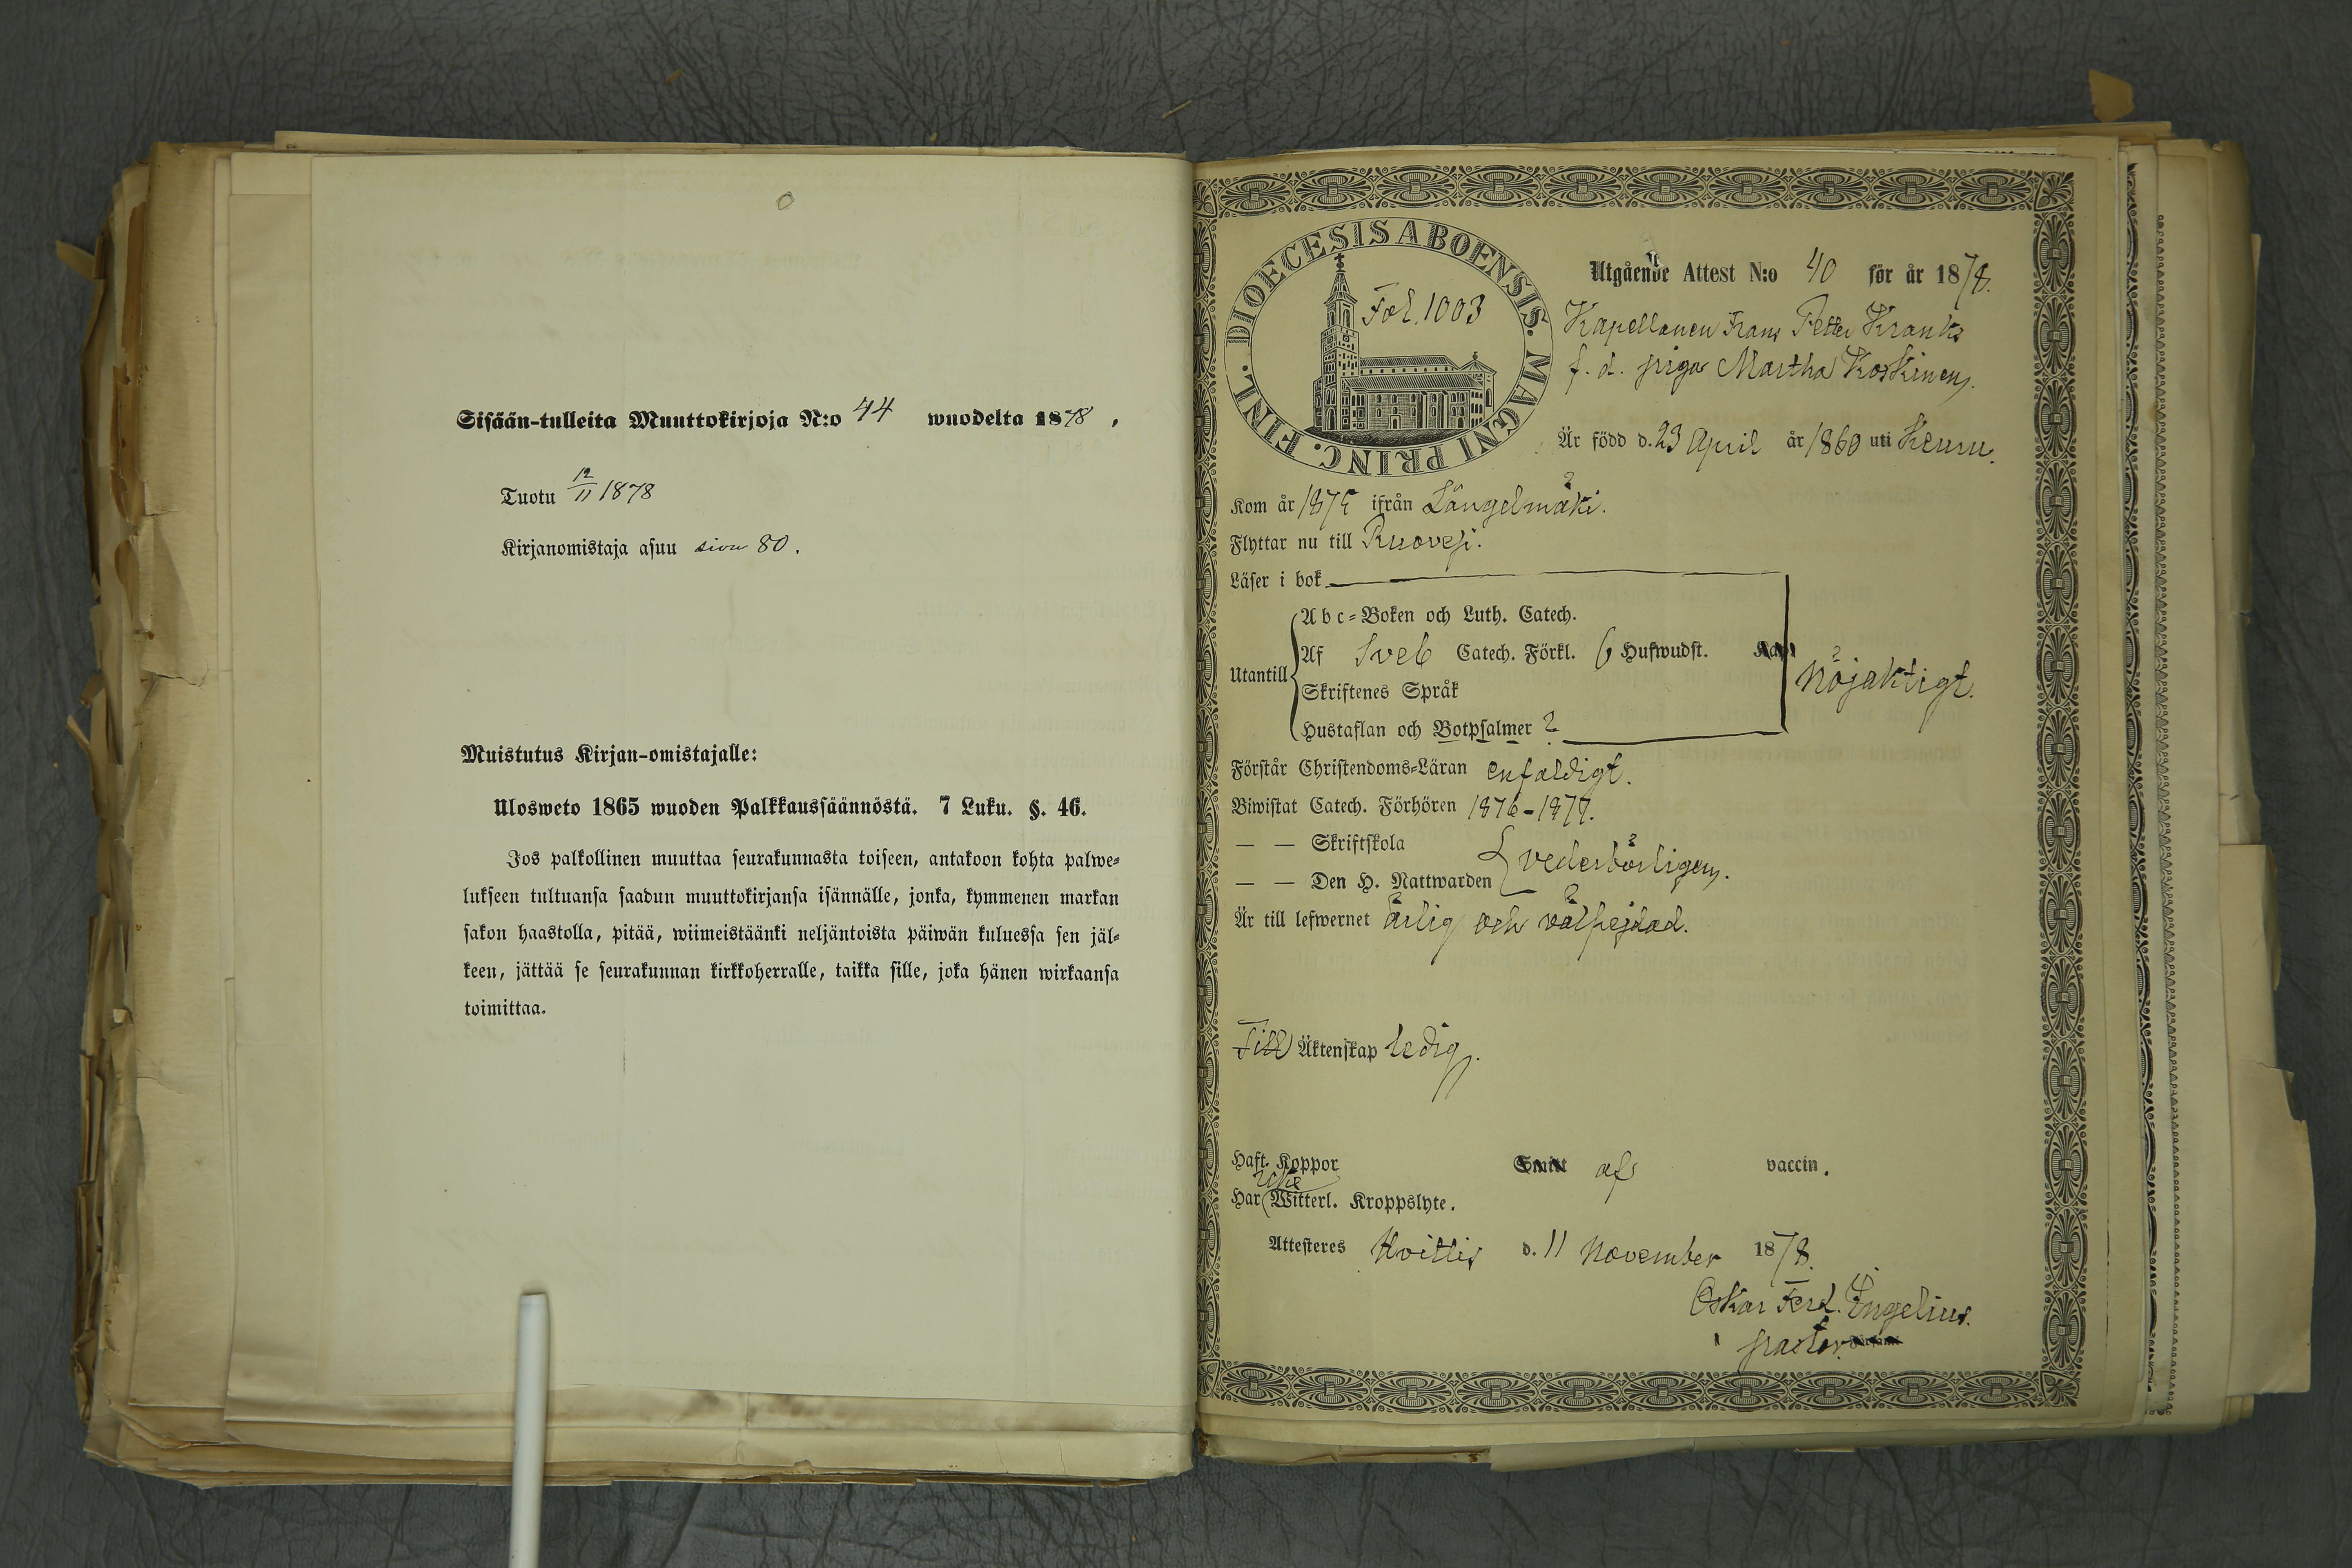 Sisään-tulleita Muuttokirjoja N:o 44 wuodelta 1878,
Tuotu 12/11 1878
Kirjanomistaja asuu sivu 80.
Muistutus Kirjan-omistajalle:
Ulosweto 1865 wuoden Palkkaussäännöstä. 7 Luku. §. 46.
Jos palkollinen muuttaa seurakunnasta toiseen, antakoon kohta palwe-
lukseen tultuansa saadun muuttokirjansa isännälle, jonka, kymmenen markan
sakon haastolla, pitää, wiimeistäänki neljäntoista päiwän kuluessa sen jäl-
keen, jättää se seurakunnan kirkkoherralle, taikka sille, joka hänen wirkaansa
toimittaa.
DIOECESIS ABOENSIS. MAGNI PRINC. FINL.
Fol. 1003
Utgående Attest N:o 40 för år 1878.
Kapellanen Frans Petter Krank
f. d. piga Martha Koskinen,
Är född d. 23 April år 1860 uti Keuru.
Kom år 187 ifrån Längelmäki.
Flyttar nu till Ruovesi.
Läser i bok
Utantill
Abc-Boken och Luth. Catech.
Af Sveb Catech. Förkl. 6 Hufwudst. Kap
Skriftenes Språk
Hustaflan och Botpsalmer 2
nöjaktigt.
Förstår Christendoms-Läran enfaldigt.
Biwistat Catech. Förhören 1876-1877.
— — Skriftskola
— — Den H. Nattwarden
vederbörligen.
Är till lefwernet ärlig och välfrejdad.
Till Äktenskap ledig.
Haft Koppor Smitt af vaccin.
Har icke Witterl. Kroppslyte.
Attesteres Hvittis d. 11 November 1878.
Oskar Ferd. Engelius.
pastor